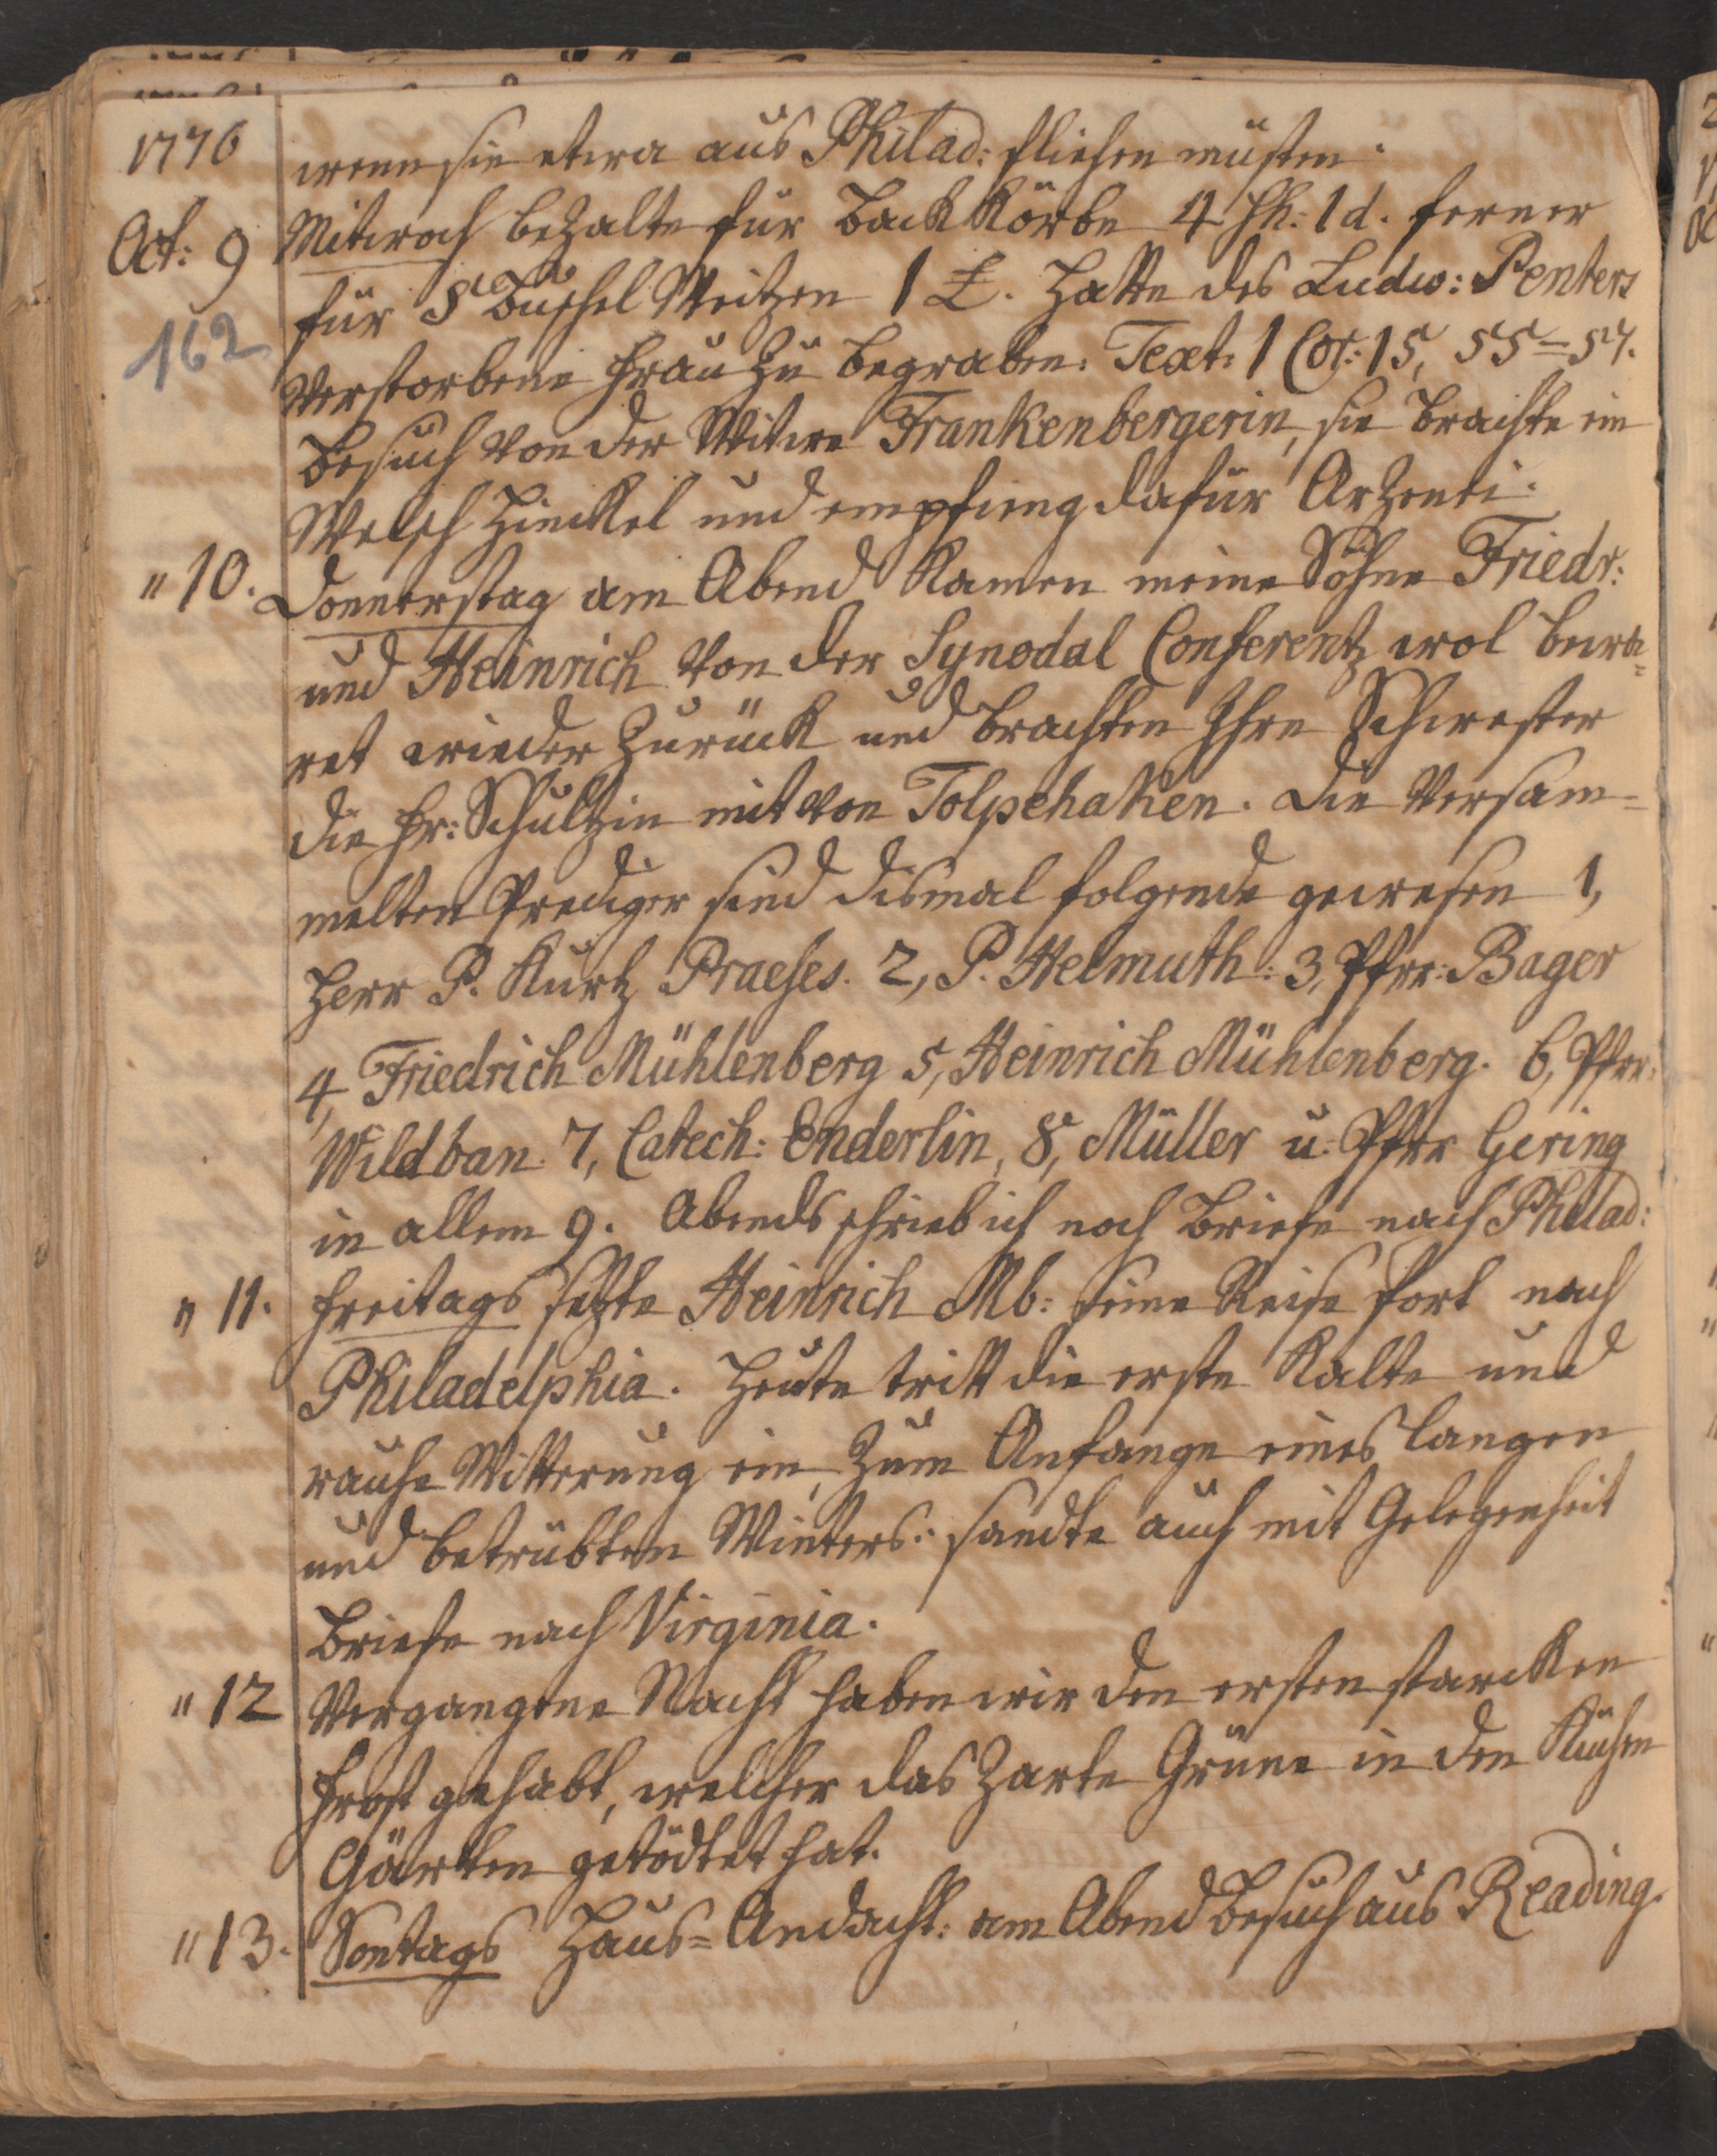 1776 wenn sie etwa aus Philad: fliehen müsten.
Oct: 9 Mitwoch bezalte für Back Körbe 4 sh: 1 d. ferner
für 5 Buschel Weitzen 1 £. Hatte des Ludw: Penters
162 verstorbene Frau zu begraben. Text: 1 Cor: 15, 55=57.
Besuch von der Witwe Frankenbergerin, sie brachte ein
Welsch Hinckel und empfieng dafür Arzenei.
" 10. Donnerstag am Abend kamen meine Söhne Friedr:
und Heinrich von der Synodal Conferentz wol bewa=
ret wieder zurück und brachten Ihre Schwester
die Fr: Schultzin mit von Tolpehaken. Die versam=
melten Prediger sind dismal folgende gewesen 1,
Herr P. Kurtz Praeses. 2, P. Helmuth: 3, Pfrr: Bager
4, Friedrich Mühlenberg 5, Heinrich Mühlenberg. 6, Pfrr:
Wildban. 7, Catech: Enderlin, 8, Müller u. Pfrr Gering
in allem 9. Abends schrieb ich noch Briefe nach Philad:
" 11. Freitags setzte Heinrich Mb: seine Reise fort nach
Philadelphia. Heute tritt die erste Kalte und
rauhe Witterung ein, zum Anfange eines langen
und betrübten Winters: sandte auch mit Gelegenheit
Briefe nach Virginia.
" 12 Vergangene Nacht haben wir den ersten starcken
Frost gehabt, welcher das zarte Grüne in den Küchen
Gärten getödtet hat.
" 13. Sontags Haus=Andacht: am Abend Besuch aus Reading.